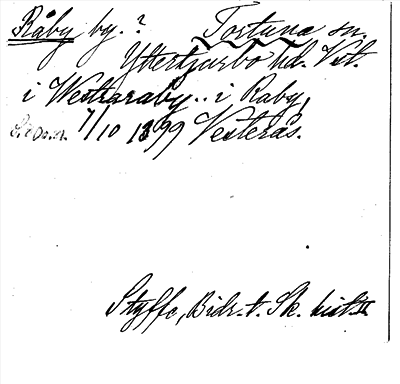 Råby by. ? Tortuna sn.
Yttertjurbo hd. Vst.
i Westraraby.. i Raby
7/10 1399 Vesterås.
Styffe, Bidr. t. Sk. hist. II